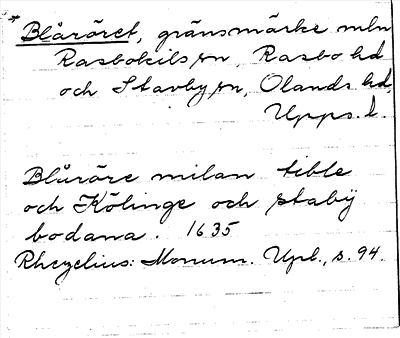 Blåröret, gränsmärke mln
Rasbokils sn, Rasbo hd
och Stavby sn, Olands hd,
Upps. l.
Blåröre milan tible
och Kölinge och stabÿ
bodana. 1635
Rhezelius: Monum. Upl., s. 94.